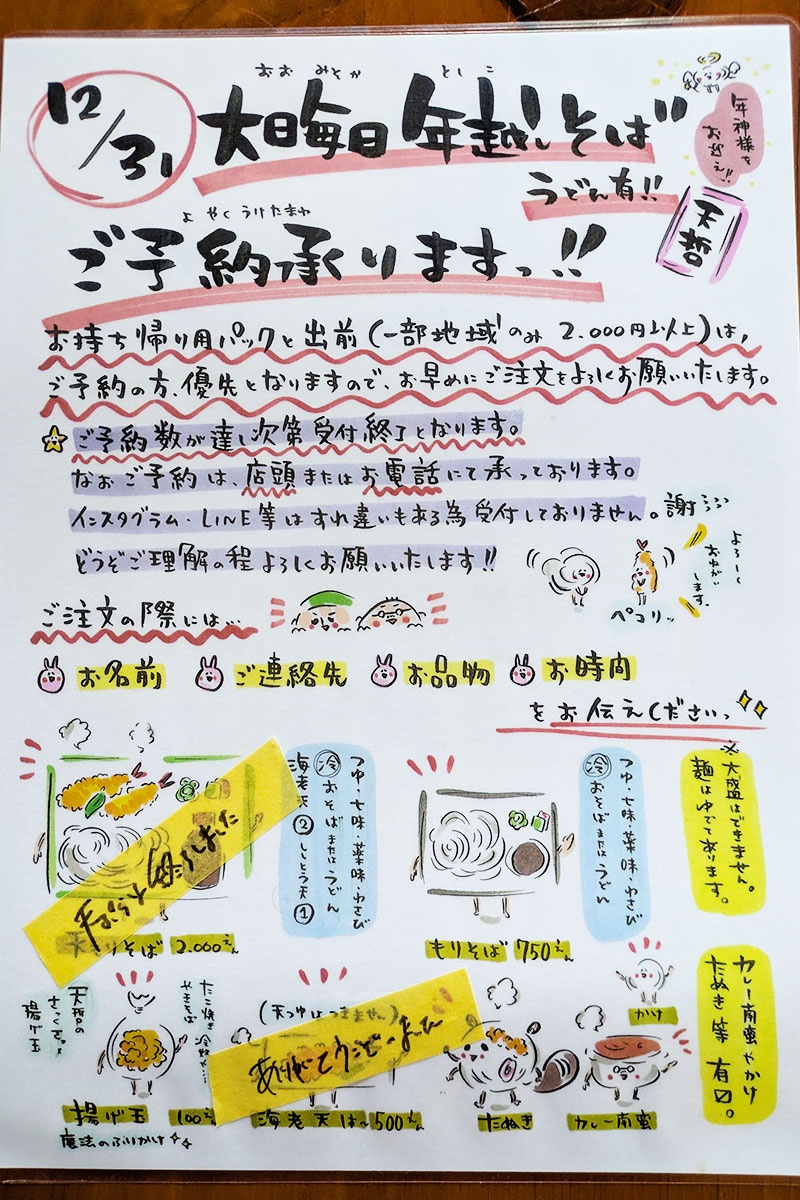 12/31
おおみそか としこ
大晦日 年越しそば
うどん有!!
年神様を
お迎え!!
天哲
よやくうけたまわ
ご予約承りますっ!!
お持ち帰り用パックと出前(一部地域のみ 2.000円以上)は、
ご予約の方、優先となりますので、お早めにご注文をよろしくお願いいたします。
ご予約数が達し次第受付終了となります。
なおご予約は、店頭またはお電話にて承っております。
インスタグラム・LINE等はすれ違いもある為受付しておりません。謝
どうぞご理解の程よろしくお願いいたします!!
よろしく
おねがい
します。
ペコリッ
ご注文の際には…
お名前 ご連絡先 お品物 お時間
をお伝えくださいっ
つゆ・七味・薬味・わさび
冷 おそばまたはうどん
海老天② ししとう天①
天ざりそば 2.000えん
つゆ・七味・薬味・わさび
冷 おそばまたはうどん
もりそば 750えん
※大盛はできません。
麺はゆでてあります。
天哲の
さっくさくっ
揚げ玉
たこ焼き
やきそば
冷奴や…
揚げ玉 100えん
魔法のふりかけ
(天つゆはつきません)
ありがとうございました
海老天 1本〜500えん
たぬき
かけ
カレー南蛮
カレー南蛮やかけ
たぬき等 有〼。